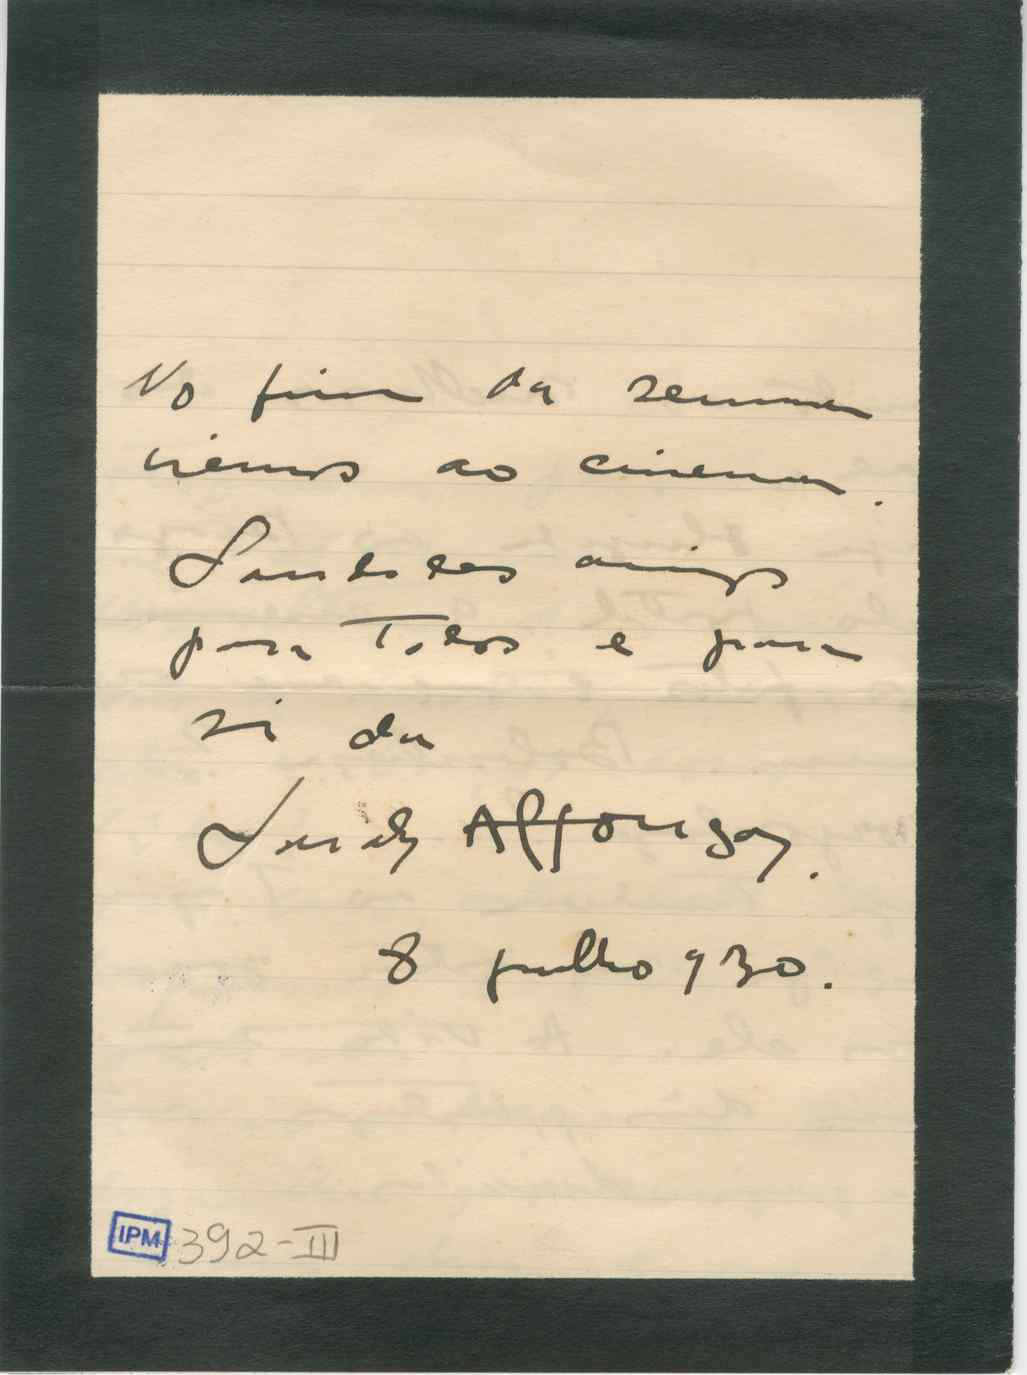 No fim da semana
iremos ao cinema.
Saudades amigas
para Todos e para
si da
Affonso.
8 julho 930.
IPM 392-III